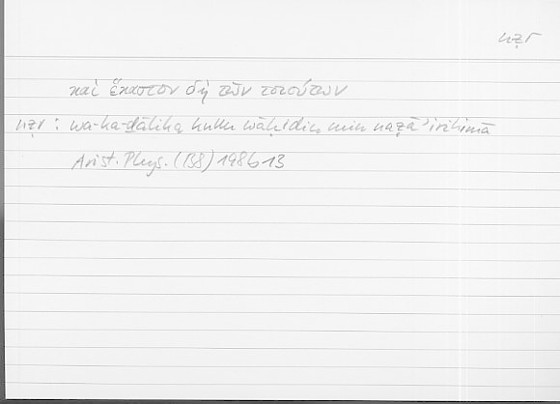 nẓr
καὶ ἕκαστον δὴ τῶν τοιούτων
nẓr : wa-ka-ḏālika kullu wāḥidin min naẓāʾirihimā
Arist. Phys. (158) 198b13